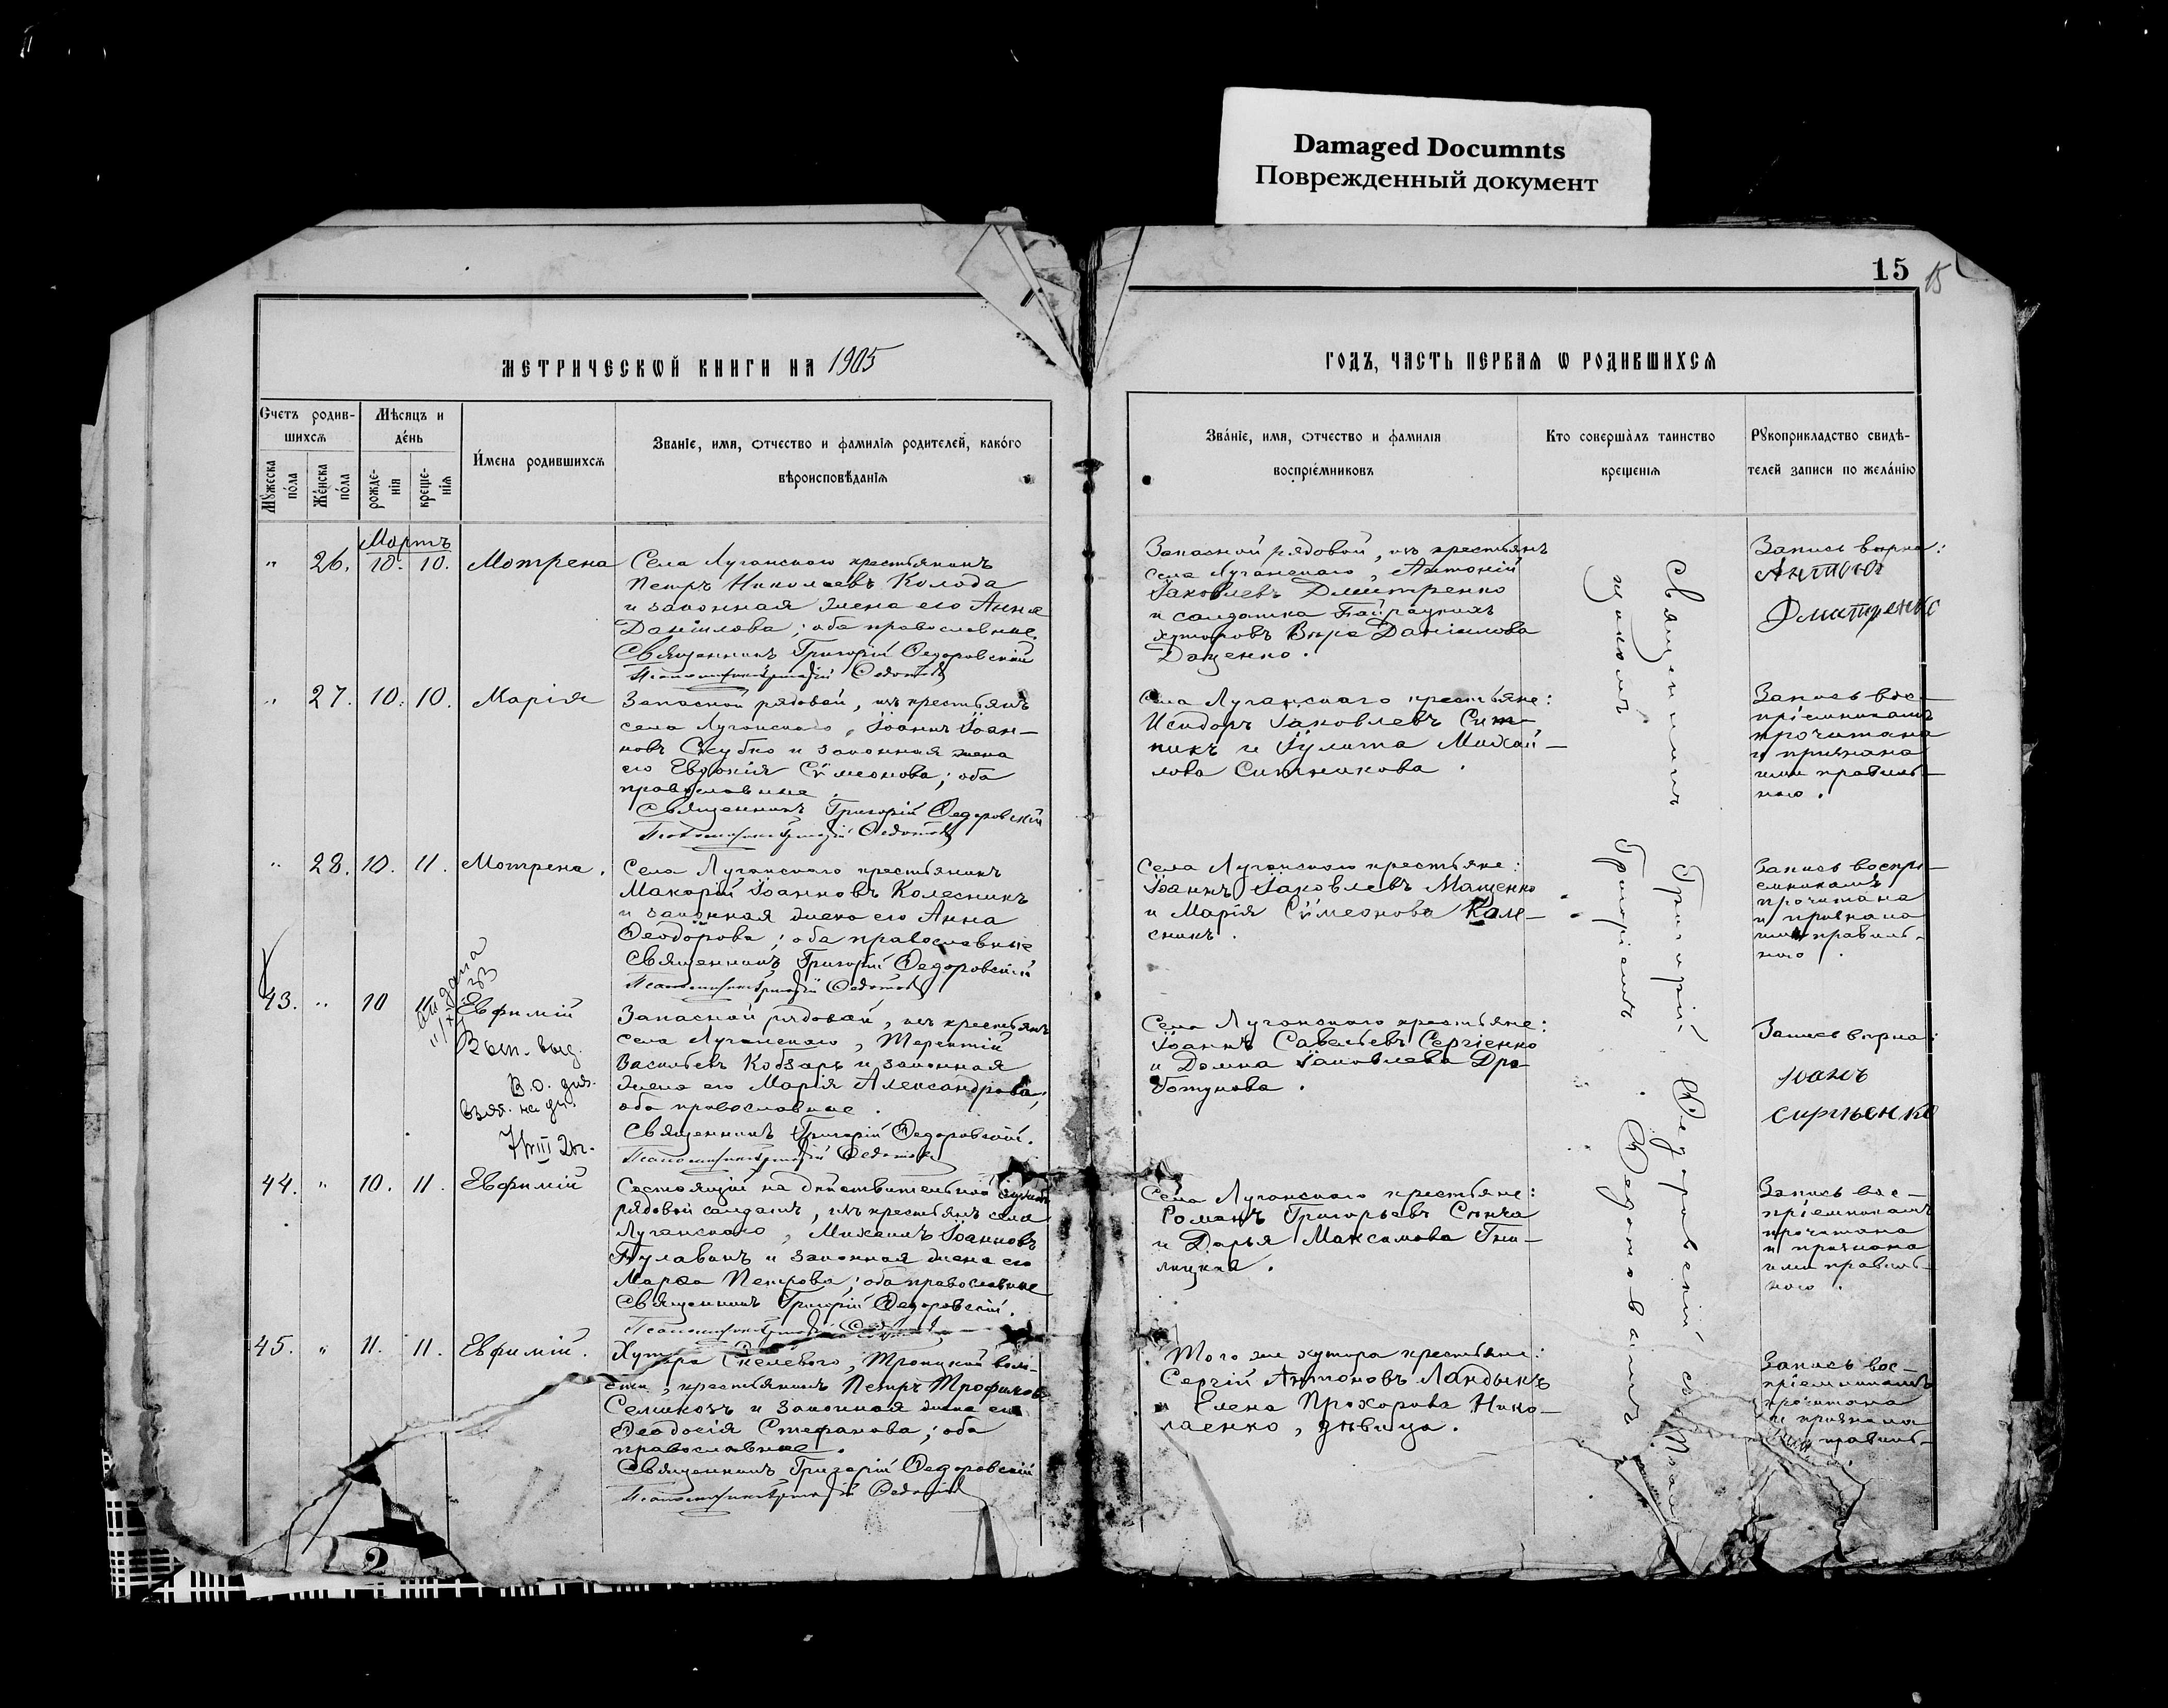 Damaged Documnts
Поврежденный документ
15
15
МЕТРИЧЕСКѠЙ КНИГИ НА 1905
ГОДЪ, ЧАСТЬ ПЕРВАѦ Ѡ РОДИВШИХСѦ
Счетъ родив-
шихсѧ
Мѣсяцъ и
де́нь
И́мена родившихсѧ
Званіе, имя, отчество и фамиліѧ родителей, како́го
вѣроисповѣданіѧ
Мꙋжеска
по́ла
Же́нска
по́ла
рожде-
нія
креще-
ніѧ
Зва́ніе, имя, отчество и фамиліѧ
воспріе́мниковъ
Кто совершалъ таинство
крещеніѧ
Рꙋкоприкладство свидѣ-
телей записи по жела́нію
Мартъ
" 26. 10. 10. Мотрена
Села Луганского крестьянинъ
Петръ Николаевъ Колода
и законная жена его Анна
Даніилова; оба православные.
Священникъ Григорій Ѳедоровскій
Запасной рядовой, изъ крестьянъ
села Луганского, Антоній
Іаковлевъ Дмитренко
и солдатка
хуторовъ Вѣра Даніилова
Даценко.
Запись вѣрна:
Антоній
Дмитренко
" 27. 10. 10. Марія
Запасной рядовой, изъ крестьянъ
села Луганского, Іоаннъ Іоан-
новъ Скубко и законная жена
его Евдокія Сѵмеонова; оба
православные.
Священникъ Григорій Ѳедоровскій
Села Луганского крестьяне:
Исидоръ Іаковлевъ Сит-
никъ и Іулита Михай-
лова Ситникова.
Запись вос-
пріемникамъ
прочитана
и признана
ими правиль-
ною.
" 28. 10. 11. Мотрена.
Села Луганского крестьянинъ
Макарій Іоанновъ Колесникъ
и законная жена его Анна
Ѳеодорова; оба православные
Священникъ Григорій Ѳедоровскій
Села Луганского крестьяне:
Іоаннъ Іаковлевъ Мащенко
и Марія Сѵмеонова Коле-
сникъ.
Запись воспрі-
емникамъ
прочитана
и признана
ими правиль-
ною.
43. " 10 11. Евфимій
Вып. выд.
Запасной рядовой, изъ крестьянъ
села Луганского, Терентій
Васильевъ Кобзарь и законная
жена его Марія Александрова;
оба православные.
Священникъ Григорій Ѳедоровскій.
Села Луганского крестьяне:
Іоаннъ Савельевъ Сергіенко
и Домна Іаковлева Дра-
Запись вѣрна:
Иванъ
Сиргіенко
44. " 10. 11. Евфимій
Состоящій на дѣйствительной службѣ
рядовой солдатъ, изъ крестьянъ села
Луганского, Михаилъ Іоанновъ
Булавинъ и законная жена его
Марѳа Петрова; оба православные
Священникъ Григорій Ѳедоровскій.
Села Луганского крестьяне:
Романъ Григорьевъ
и Дарья Максимова Гни-
лицкая.
Запись вос-
пріемникамъ
прочитана
и признана
ими правиль-
ною.
45. " 11. 11. Евфимій.
Хутора Скелевого, Троицкой воло-
сти, крестьянинъ Петръ Трофимовъ
и законная жена его
Ѳеодосія Стефанова; оба
православные.
Священникъ Григорій Ѳедоровскій
Того же хутора крестьяне:
Сергій Антоновъ Ландыкъ
и Елена Прохорова Нико-
лаенко, дѣвица.
Запись вос-
пріемникамъ
прочитана
и признана
ими правиль-
Священникъ Григорій Ѳедоровскій съ
Григоріемъ Ѳедотовымъ
2